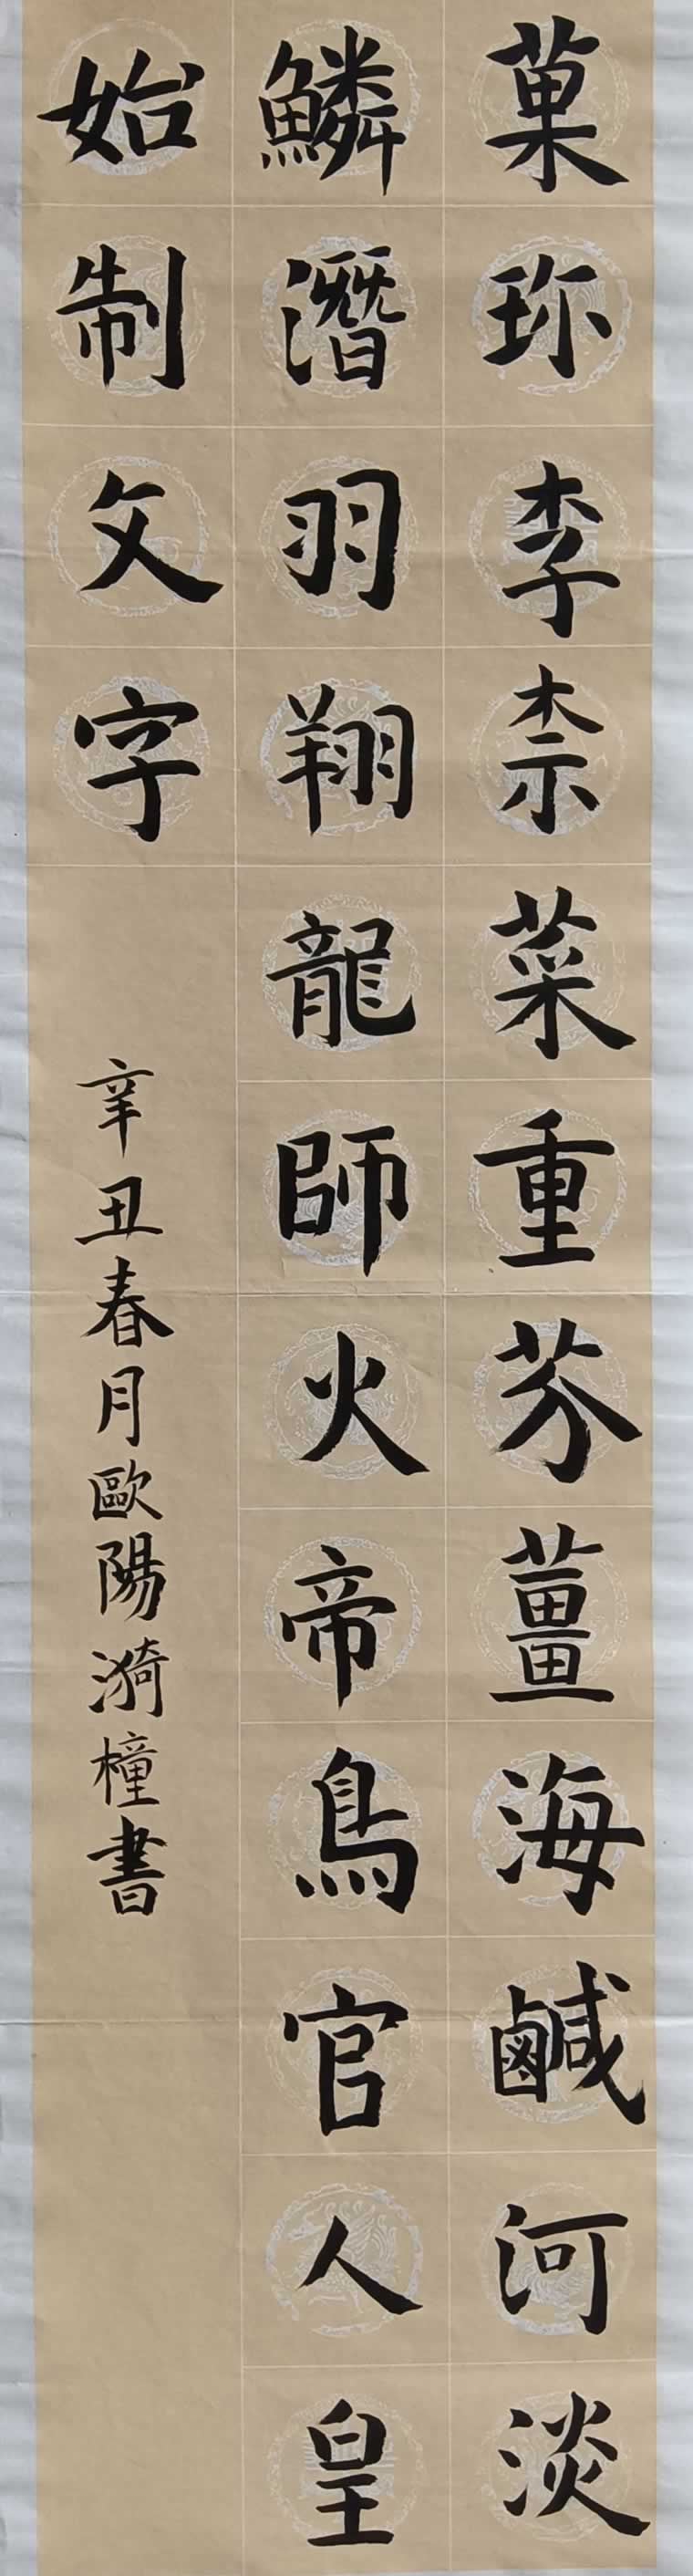 菓珎李柰菜重芥薑海鹹河淡
鱗潛羽翔龍師火帝鳥官人皇
始制文字
辛丑春月歐陽漪橦書